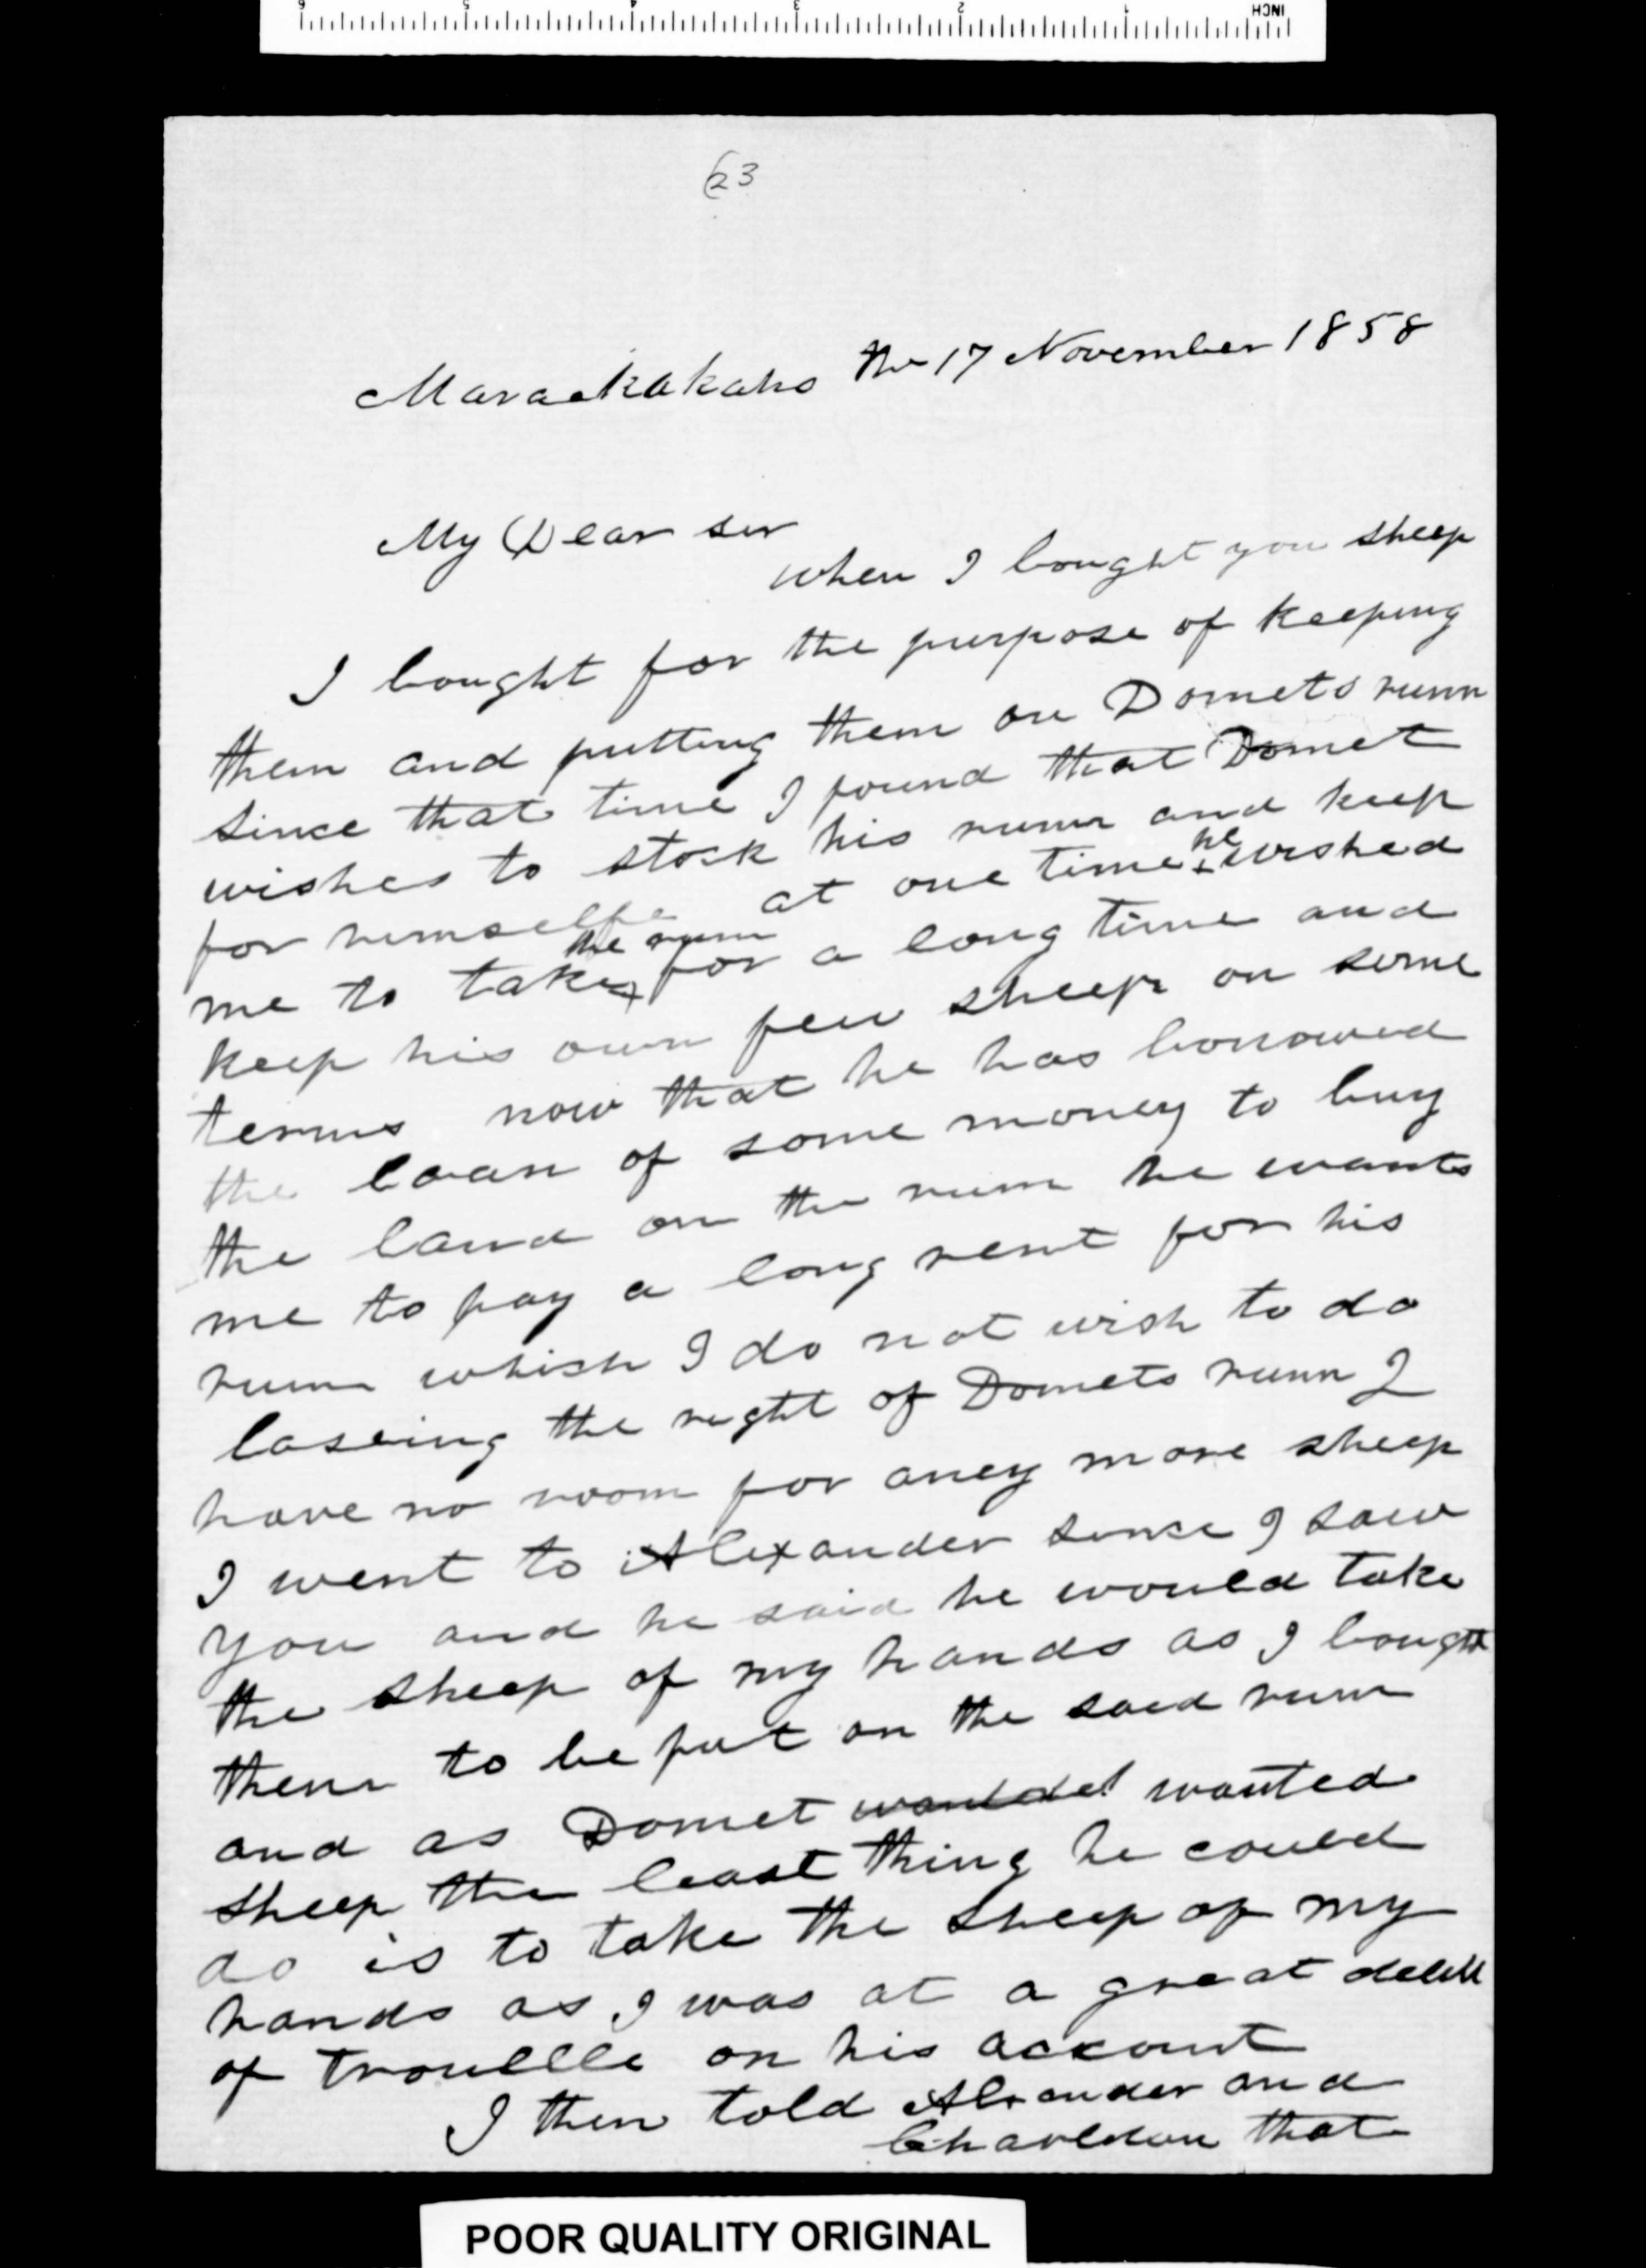 6 5 4 3 2 1 INCH
23
Maraekakaho the 17 November 1858
My Dear sir
when I bought you sheep
I bought for the purpose of keeping
them and putting them on Domets runn
since that time I found that Domet
wishes to stock his runn and keep
for himselfe at one time he wished
me to take the runn for a long time and
keep his own few sheep on some
terms now that he has borrowed
the loan of some money to buy
the land on the runn he wants
me to pay a long rent for his
runn which I do not wish to do
loseing the right of Domets runn I
have no room for aney more sheep
I went to Alexander since I saw
you and he said he would take
the sheep of my hands as I bought
them to be put on the said runn
and as Domet wanted
sheep the least thing he could
do is to take the sheep of my
hands as I was at a great deell
of troublle on his account
I then told Alxander and
that
POOR QUALITY ORIGINAL